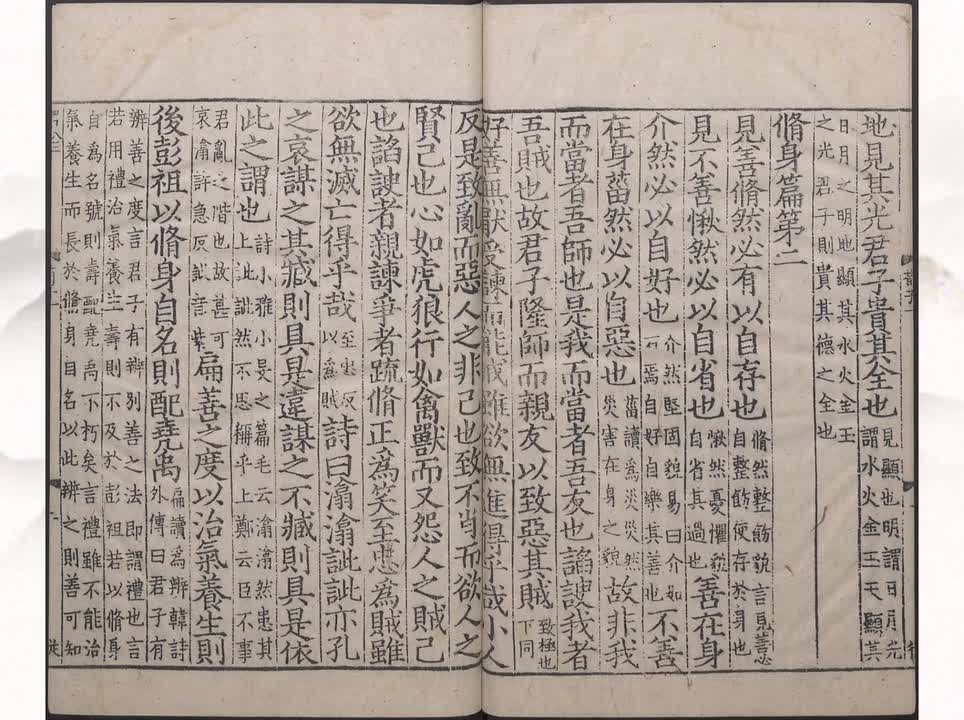 地見其光君子貴其全也見顯也明謂日月光謂水火金玉天顯其
日月之明地顯其水火金玉之光君子則貴其德之全也
脩身篇第二
見善脩然必有以自存也脩然整飭貌言見善必自整飭使存於身也
見不善愀然必以自省也愀然憂懼貌自省其過也善在身
介然必以自好也介然堅固貌易曰介如石焉自好自樂其善也不善
在身菑然必以自惡也菑讀爲災災然災害在身之貌故非我
而當者吾師也是我而當者吾友也諂諛我者
吾賊也故君子隆師而親友以致惡其賊致極也下同
好善無厭受諫而能誡雖欲無進得乎哉小人
反是致亂而惡人之非己也致不肖而欲人之
賢己也心如虎狼行如禽獸而又怨人之賊己
也諂諛者親諫爭者疏脩正爲笑至忠爲賊雖
欲無滅亡得乎哉至忠反以爲賊詩曰潝潝訿訿亦孔
之哀謀之其臧則具是違謀之不臧則具是依
此之謂也詩小雅小旻之篇毛云潝潝然患其上訿訿然不思稱乎上鄭云臣不事
君亂之階也故甚可哀潝許急反訿音紫扁善之度以治氣養生則
後彭祖以脩身自名則配堯禹扁讀爲辨韓詩外傳曰君子有
辨善之度言君子有辨別善之法即謂禮也言若用禮治氣養生壽則不及於彭祖若以脩身
自爲名號則壽配堯禹不朽矣言禮雖不能治氣養生而長於脩身自名以此辨之則善可知